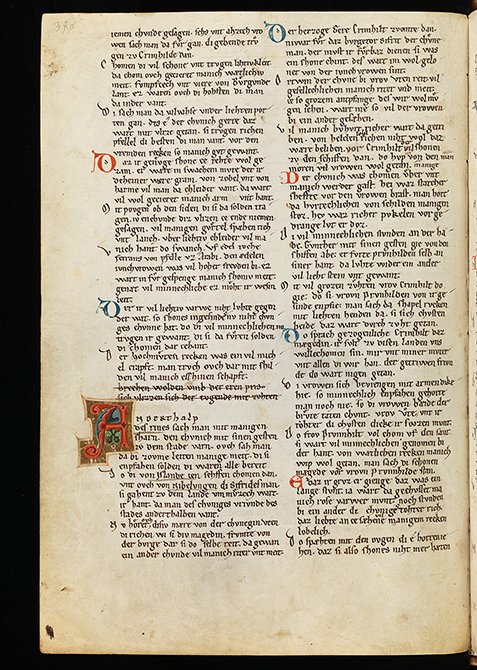 380
iemen chunde gesagen. sehs unt ahzech vro
wen sach man da fur gan. di gebende
gen zv Crimhilde dan.
Chomen di vil schone unt trugen liehtiv cleit
da chom ovch gecieret manich wætlichiv
meit. unt vierzech von Burgonde
lant. ez waren ovch di hohsten di man
da inder vant.
Di sach man da val vahse under liehten porten
gan. des e der chunich gerte daz
wart mit vlize getan. si trugen richen
pfellel di besten di man vant. vor den
vremden recken so manich gut gewant.
Daz ir getvge schone ze rehte wol gezam.
er wære in swachem mute der ir
deheiner wære gram. von zobel unt von
harme vil man da chleider vant. da wart
vil wol gecieret manich arm unt hant.
Mit povgen ob den siden di si da solden tragen.
iv enchunde diz vlizen ze ende niemen
gesagen. vil manigen gurtel spæhen rich
unt lanch. uber liehtiv chleider vil manich
hant do swanch.
von pfelle uz Arabi. den edelen
iuncvrowen was vil hoher frevden bi.
Ez wart in furgespenge manich schoniu meit
genæt vil minnechliche ez moht ir wesen
leit.
Der ir vil liehtiv varwe niht luhte gegen
der wat. so schones ingesindes nu niht
chunne hat. do di vil minnechlichen nu
trugen ir gewant. di si da furen solden
di chomen dar zehant.
Der hochmuten recken was ein vil michel
craft. man truch ovch dar mit schilden
vil manich esschinen schaft.
Anderthalp
des Rines sach man mit manigen
scharn. den chunich mit sinen gesten
zv dem stade varn. ovch sah man
da bi zovme leiten manige meit. di si
enpfahen solden di waren alle bereit.
Do di von Islande zen scheffen chomen dan.
unt ovch von Nibelungen di Sifrides man.
si gahten zv dem lande unmuzech wart
ir hant. da man des chuniges vriunde des
stades anderthalben vant.
Nv horet disiv mære von der chuneginne Vten
di richen. wi si div magedin frumte von
der burge dar si do selbe reit. da gewan
ein ander chunde vil manich riter unt meit.
Der herzoge Gere Crimhilt zovmte dan.
niwan fur daz burgetor Sifrit der chune
man. der must ir furbaz dienen si was
ein schone chint. des wart im wol gelonet
von der iuncvrowen sint.
Ortwin der chune bi vron Vten reit. vil
gesellechlichen manich riter unt meit.
ze so grozem antpfange des wir wol mugen
iehen. wart nie so vil der vrowen
bi ein ander gesehen.
Vil manich buhurt richer wart da getriben.
von helden richen niht wol
wære beliben. vor Crimhilt vil schonen
zv den schiffen dan. do hup von den mœren
vil vrowen wol getan.
Der chunich was chomen uber unt
manich werder gast. hey waz starcher
schefte vor den vrowen brast. man hort
da hurtechlichen von schilden manigen
stoz. hey waz richer pukelen vor gedrange
lut er doz.
Di vil minnechlichen stunden an der habe.
Gunther mit sinen gesten gie von den
schiffen abe. er furte Prunhilden selbe an
siner hant. da luhte wider ein ander
vil lieht stein unt gewant.
Mit vil grozen zuhten vrov Crimhilt do
gie. do si vron Prunhilden unt ir gesinde
enpfie. man sach da shapel rucken
mit liehten henden da. si sich chusten
beide daz wart durch zuht getan.
Do sprach gezogenliche Crimhilt daz
magedin. ir sult zv disen landen uns
willechomen sin. mir unt miner muter
unt allen di wir han. der getriwen friunde
do wart nigen getan.
Di vrowen sich bevingen mit armen dike
hie. so minnechlich enpfahen gehorte
man noch nie. so di vrowen beide der
brute taten chunt. vrov Vte unt ir
tohter di chusten dicke ir suzen munt.
Do frov Prunhilt vol chom uf den sant.
si wart vil minnechlichen genomen bi
der hant. von wætlichen recken manich
wip wol getan. man sach di schonen
magede vor vron Prunhilde stan.
E daz ir gruz er gienge daz was ein
lange stunt. ia wart da gechusset manich
rosevarwer munt. noch stunden
bi ein ander di chunige tohter rich.
daz liebte an ze sehene manigen recken
lobelich.
Do spæhten mit den ovgen di e horten
iehen. daz si also schones niht mer hæten